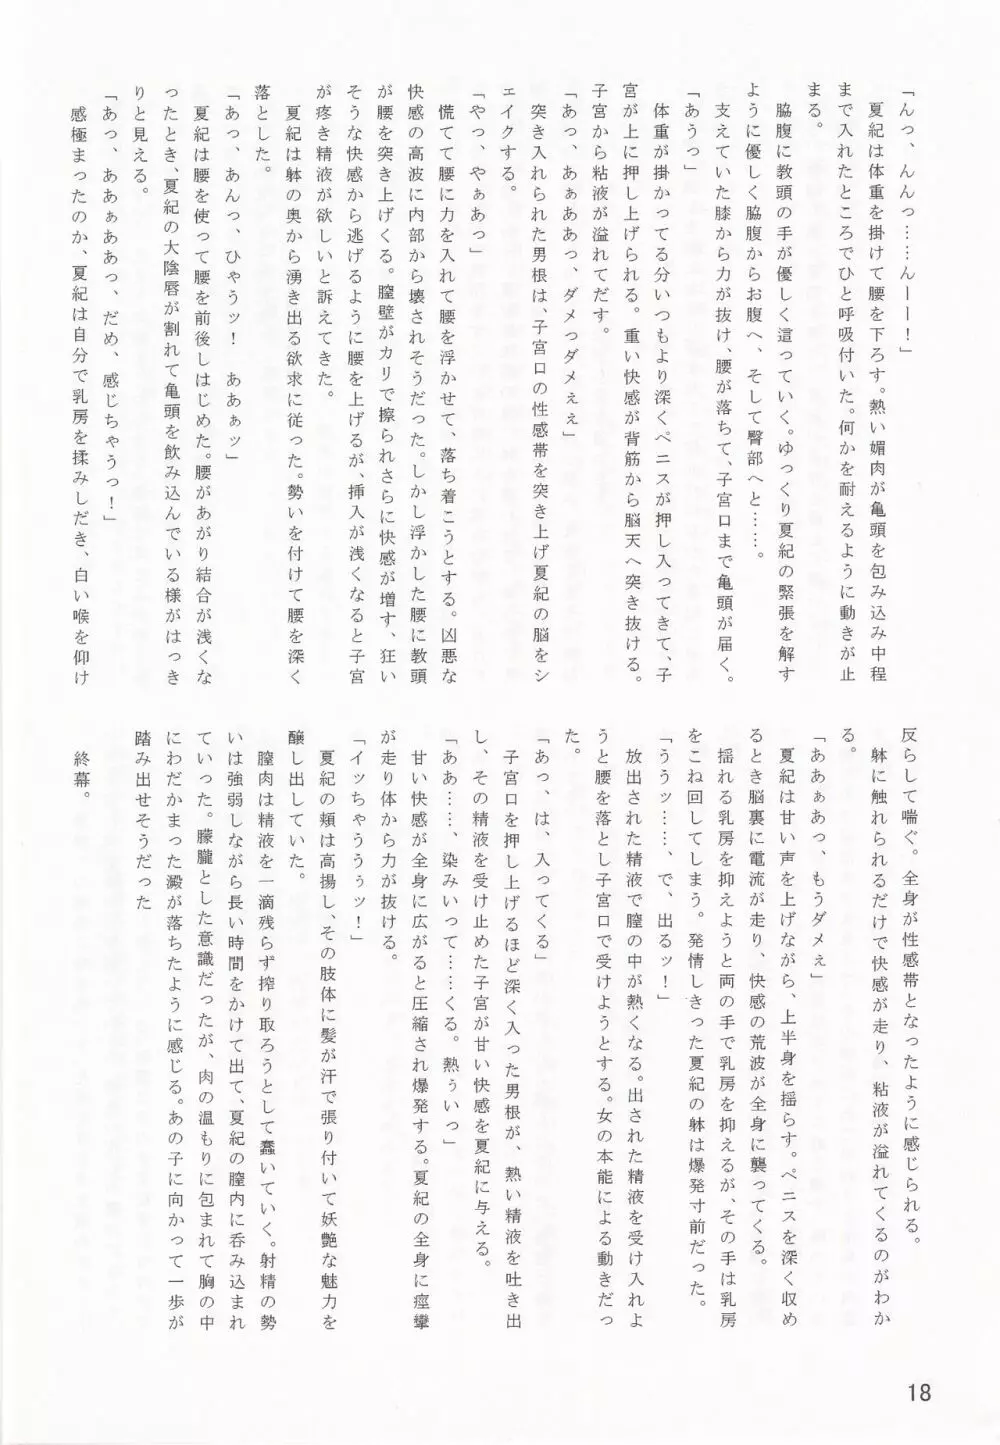 「んっ、んんっ……んーー！」
　夏紀は体重を掛けて腰を下ろす。熱い媚肉が亀頭を包み込み中程
まで入れたところでひと呼吸付いた。何かを耐えるように動きが止
まる。
　脇腹に教頭の手が優しく這っていく。ゆっくり夏紀の緊張を解す
ように優しく脇腹からお腹へ、そして臀部へと……。
　支えていた膝から力が抜け、腰が落ちて、子宮口まで亀頭が届く。
「あうっ」
　体重が掛かってる分いつもより深くペニスが押し入ってきて、子
宮が上に押し上げられる。重い快感が背筋から脳天へ突き抜ける。
子宮から粘液が溢れてだす。
「あっ、あぁああっ、ダメっダメぇぇ」
　突き入れられた男根は、子宮口の性感帯を突き上げ夏紀の脳をシ
ェイクする。
「やっ、やぁあっ」
　慌てて腰に力を入れて腰を浮かせて、落ち着こうとする。凶悪な
快感の高波に内部から壊されそうだった。しかし浮かした腰に教頭
が腰を突き上げくる。膣壁がカリで擦られさらに快感が増す、狂い
そうな快感から逃げるように腰を上げるが、挿入が浅くなると子宮
が疼き精液が欲しいと訴えてきた。
　夏紀は躰の奥から湧き出る欲求に従った。勢いを付けて腰を深く
落とした。
「あっ、あんっ、ひゃうッ！　ああぁッ」
　夏紀は腰を使って腰を前後しはじめた。腰があがり結合が浅くな
ったとき、夏紀の大陰唇が割れて亀頭を飲み込んでいる様がはっき
りと見える。
「あっ、ああぁああっ、だめ、感じちゃうっ！」
　感極まったのか、夏紀は自分で乳房を揉みしだき、白い喉を仰け
反らして喘ぐ。全身が性感帯となったように感じられる。
　躰に触れられるだけで快感が走り、粘液が溢れてくるのがわか
る。
「ああぁあっ、もうダメぇ」
　夏紀は甘い声を上げながら、上半身を揺らす。ペニスを深く収め
ると、き脳裏に電流が走り、快感の荒波が全身に襲ってくる。
　揺れる乳房を抑えようと両の手で乳房を抑えるが、その手は乳房
をこね回してしまう。発情しきった夏紀の躰は爆発寸前だった。
「ううッ……、で、出るッ！」
　放出された精液で膣の中が熱くなる。出された精液を受け入れよ
うと腰を落とし子宮口で受けようとする。女の本能による動きだっ
た。
「あっ、は、入ってくる」
　子宮口を押し上げるほど深く入った男根が、熱い精液を吐き出
し、その精液を受け止めた子宮が甘い快感を夏紀に与える。
「ああ……、染みいって……くる。熱ぅいっ」
　甘い快感が全身に広がると圧縮され爆発する。夏紀の全身に痙攣
が走り体から力が抜ける。
「イッちゃううぅッ！」
　夏紀の頬は高揚し、その肢体に髪が汗で張り付いて妖艶な魅力を
醸し出していた。
　膣肉は精液を一滴残らず搾り取ろうとして蠢いていく。射精の勢
いは強弱しながら長い時間をかけて出て、夏紀の膣内に呑み込まれ
ていった。朦朧とした意識だったが、肉の温もりに包まれて胸の中
にわだかまった澱が落ちたように感じる。あの子に向かって一歩が
踏み出せそうだった
　終幕。
18